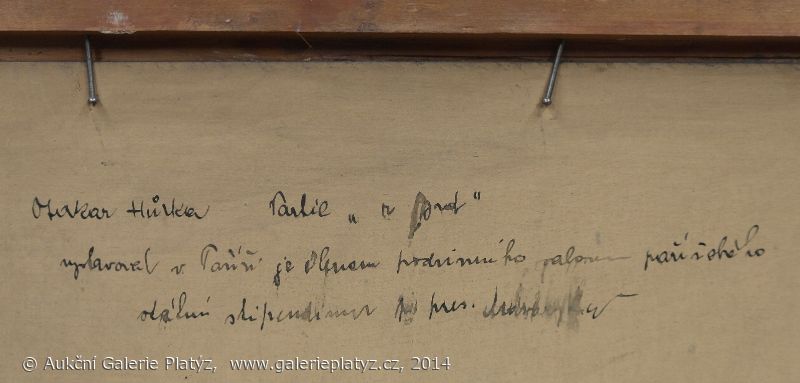 Otakar Hůrka Partie „ z
vystavoval v Paříži je členem podzimního salonu pařížského
státní stipendium pres.
© Aukční Galerie Platýz, www.galerieplatyz.cz, 2014